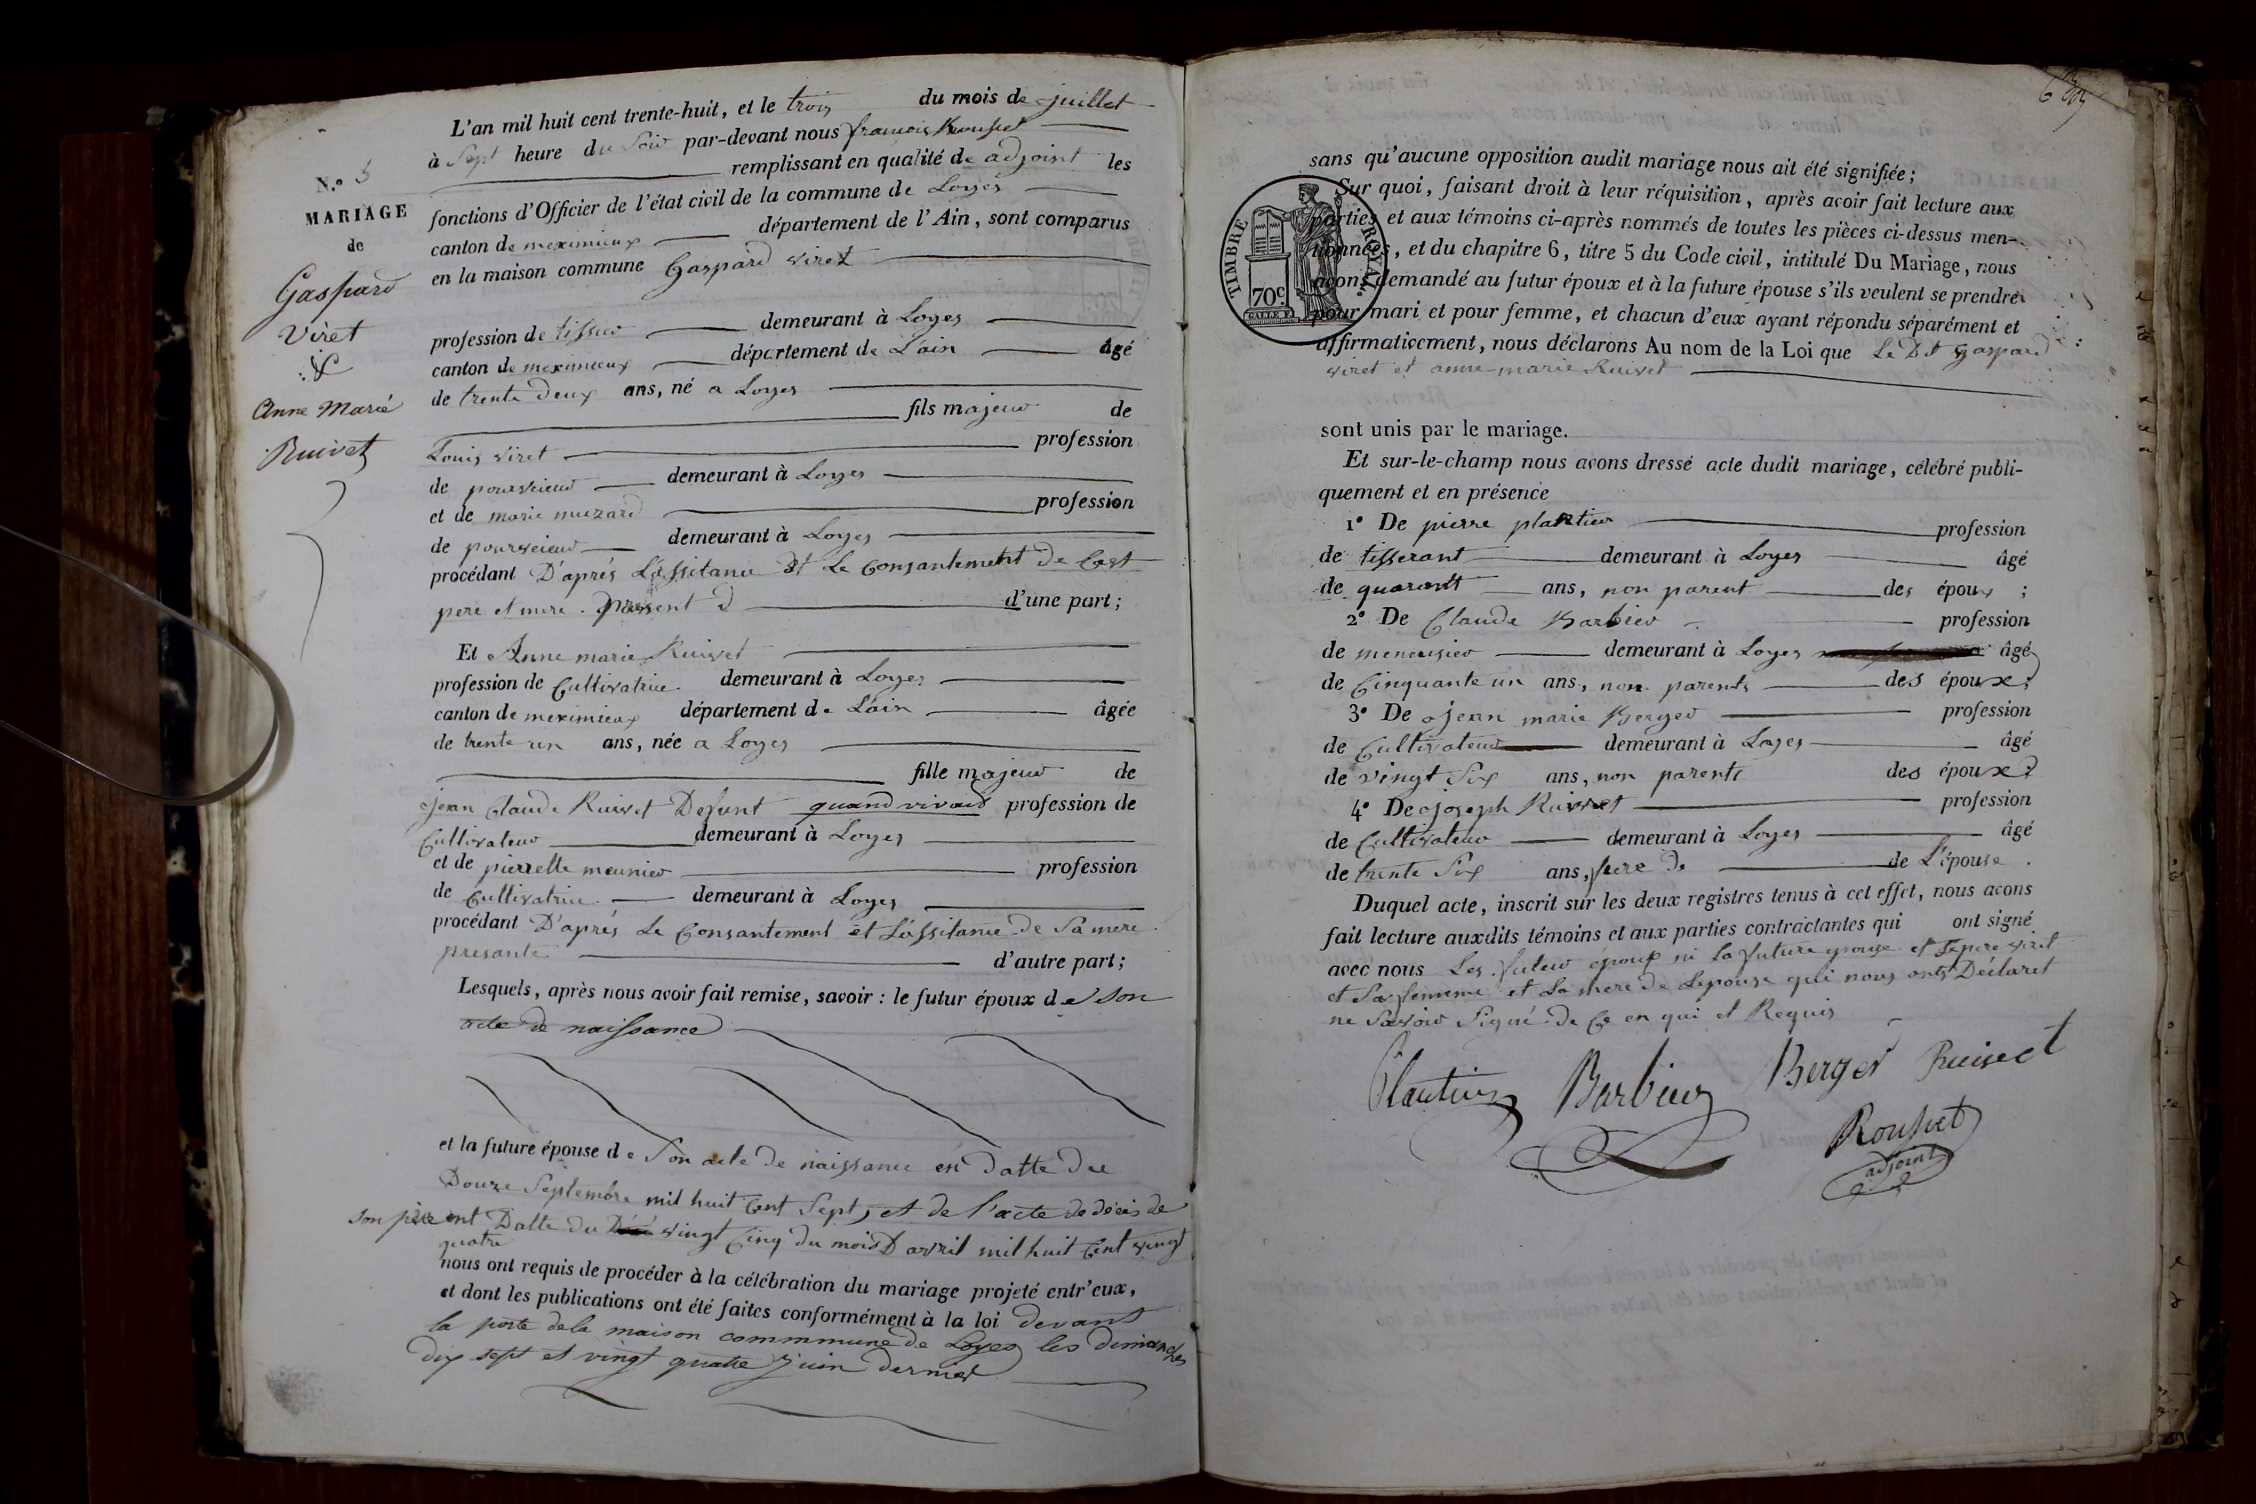 N.º 5
MARIAGE
de
Gaspard
Viret
&
Anne Marie
Ruivet
L'an mil huit cent trente-huit, et le trois du mois de juillet
à Sept heure du Soir par-devant nous francois Rousset
remplissant en qualité de adjoint les
fonctions d'Officier de l'état civil de la commune de Loyes
canton de meximieux département de l'Ain, sont comparus
en la maison commune Gaspard viret
profession de tissier demeurant à Loyes
canton de meximieux département de L'ain âgé
de trente deux ans, né a Loyes
fils majeur de
Louis viret profession
de demeurant à Loyes
et de marie muzard profession
de demeurant à Loyes
procédant D'aprés L'assitance Et Le Consantement de Cest
pere et mere present d'une part;
Et Anne marie Ruivet
profession de Cultivatrice demeurant à Loyes
canton de meximieux département de L'ain âgée
de trente un ans, née a Loyes
fille majeur de
jean Claude Ruivet Defunt quand vivais profession de
Cultivateur demeurant à Loyes
et de pierrette meunier profession
de Cultivatrice demeurant à Loyes
procédant D'aprés Le Consantement et L'assitance de Sa mere
presante d'autre part;
Lesquels, après nous avoir fait remise, savoir : le futur époux de son
acte de naissance
et la future épouse de Son acte De naissance en Datte Du
Douze Septembre mil huit Cent Sept, et de l'acte de décès de
son père ent Datte Du vingt Cinq Du mois D avril mil huit Cent vingt
quatre
nous ont requis de procéder à la célébration du mariage projeté entr'eux,
et dont les publications ont été faites conformément à la loi devant
la porte dela maison commmune de Loyes les dimanches
dix sept et vingt quatre juin dernier
sans qu'aucune opposition audit mariage nous ait été signifiée;
Sur quoi, faisant droit à leur réquisition, après avoir fait lecture aux
parties et aux témoins ci-après nommés de toutes les pièces ci-dessus men-
tionnées, et du chapitre 6, titre 5 du Code civil, intitulé Du Mariage, nous
avons demandé au futur époux et à la future épouse s'ils veulent se prendre
pour mari et pour femme, et chacun d'eux ayant répondu séparément et
affirmativement, nous déclarons Au nom de la Loi que Le Dt gaspard
viret et anne marie Ruivet
TIMBRE ROYAL.
70c.
sont unis par le mariage.
Et sur-le-champ nous avons dressé acte dudit mariage, célébré publi-
quement et en présence
1º De pierre plantier profession
de tisserant demeurant à Loyes âgé
de quarant ans, non parent des époux ;
2º De Claude Barbier profession
de meneusier demeurant à Loyes âgé
de Cinquante un ans, non parents des époux;
3º De jean marie Berger profession
de Cultivateur demeurant à Loyes âgé
de vingt Six ans, non parents des époux;
4º De joseph Ruivet profession
de Cultivateur demeurant à Loyes âgé
de trente Six ans, frere de de L'épouse.
Duquel acte, inscrit sur les deux registres tenus à cet effet, nous avons
fait lecture auxdits témoins et aux parties contractantes qui ont signé
avec nous Les futur époux ni La future epouse et Lepere viret
et Sa femme et La mere de Lepouse qui nous onts Déclaret
ne Savoir Signé de Ce en qui et Requis
Plantier Barbier Berger Ruivet
Rousset
adjoint